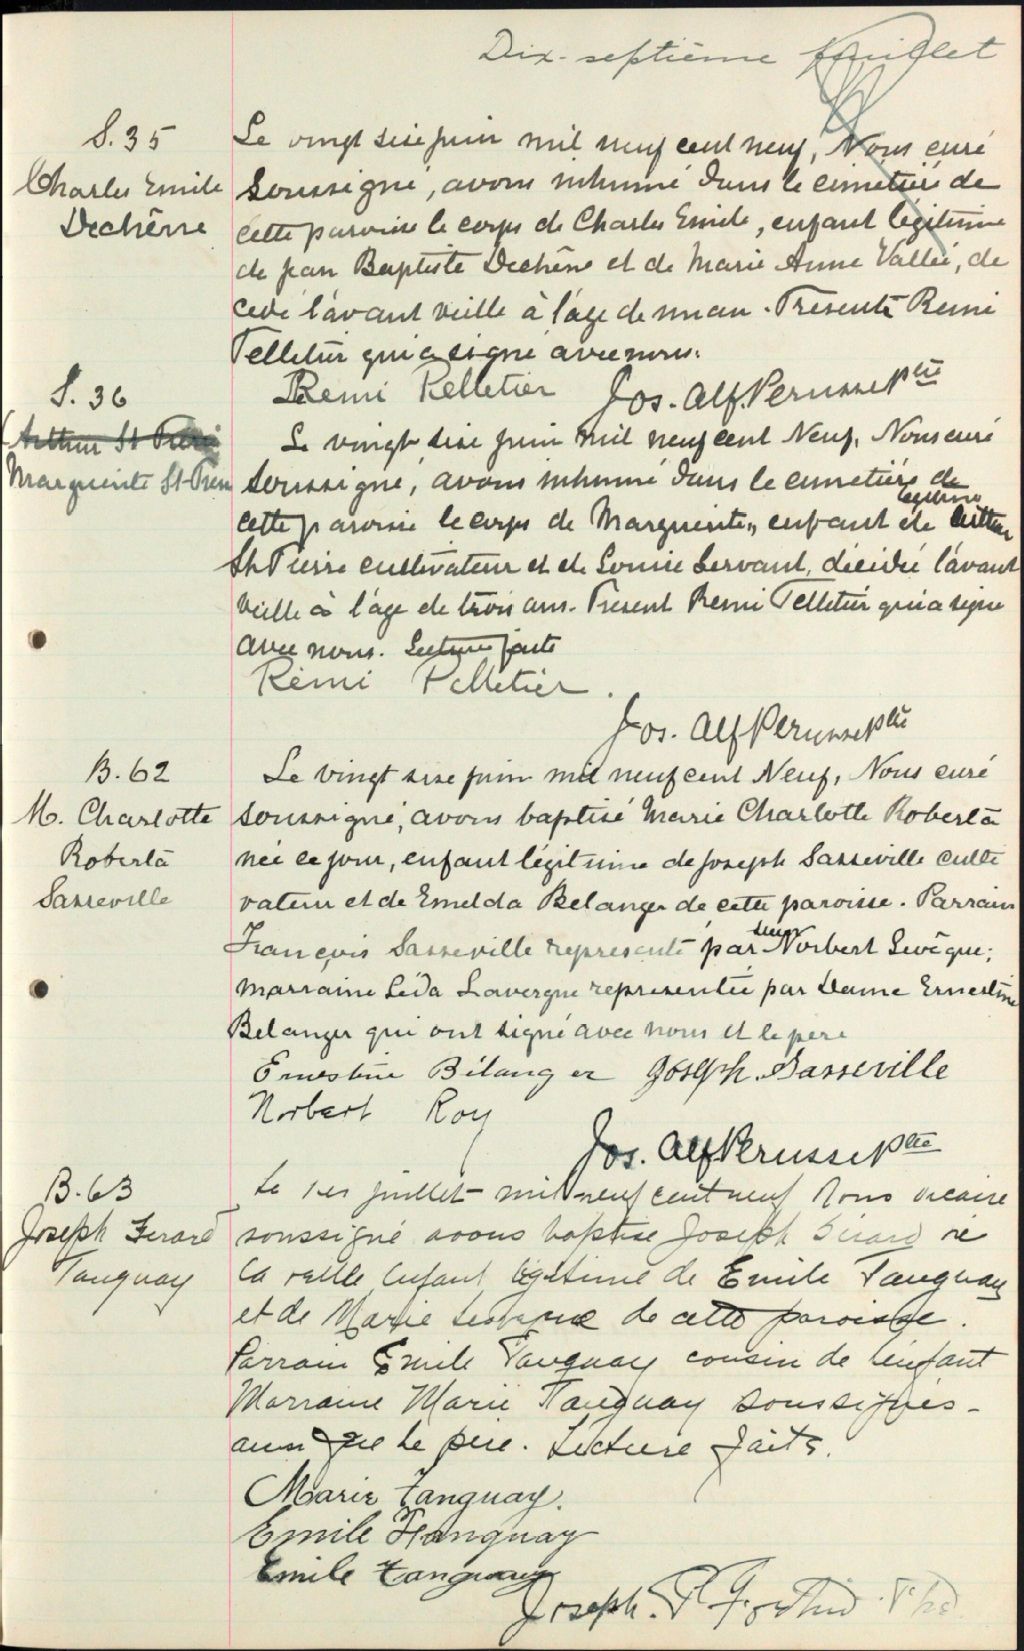 Dix-septième feuillet
S. 35
Charles Emile
Dechêne
Le vingt sise juin mil neuf cent neuf, Nous curé
soussigné, avons inhumé dans le cimetière de
cette paroisse le corps de Charles Emile, enfant légitime
de jean Baptiste Dechêne et de Marie Anne Vallée, de
cedé l'avant veille à l'age de un an. Présents Remi
Pelletier qui a signé avec nous.
Remi Pelletier Jos. Alf. Perusse Ptre
S. 36
Arthur St Pierre
Marguerite St-Pierre
Le vingt sise juin mil neuf cent Neuf, Nous curé
soussigné, avons inhumé dans le cimetière de
cette paroisse le corps de Marguerite, enfant légitime de Arthur
St Pierre cultivateur et de Louise Servant, décédée l'avant
veille à l'age de trois ans. Present Remi Pelletier qui a signé
avec nous. Lecture faite
Rémi Pelletier.
Jos. Alf Perusse Ptre
B. 62
M. Charlotte
Roberta
Sasseville
Le vingt sise juin mil neuf cent Neuf, Nous curé
soussigné, avons baptisé Marie Charlotte Roberta
née ce jour, enfant légitime de Joseph Sasseville culti
vateur et de Emelda Belanger de cette paroisse. Parrain
François Sasseville representé par sieur Norbert Levêque;
marraine Léda Lavergne representée par Dame Ernestine
Belanger qui ont signé avec nous et le père
Ernestine Bélanger Joseph. Sasseville
Norbert Roy
Jos. Alf Perusse Ptre
B. 63
Joseph Gerard
Tanguay
Le 1er juillet mil neuf cent neuf Nous vicaire
soussigné avons baptise Joseph Gerard né
la veille enfant légitime de Emile Tanguay
et de Marie de cette paroisse.
Parrain Emile Tanguay cousin de l'enfant
Marraine Marie Tanguay soussignés-
ainsi que le père. Lecture faite.
Marie Tanguay.
Emile Tanguay
Emile Tanguay
Joseph. P Fortin Ptre